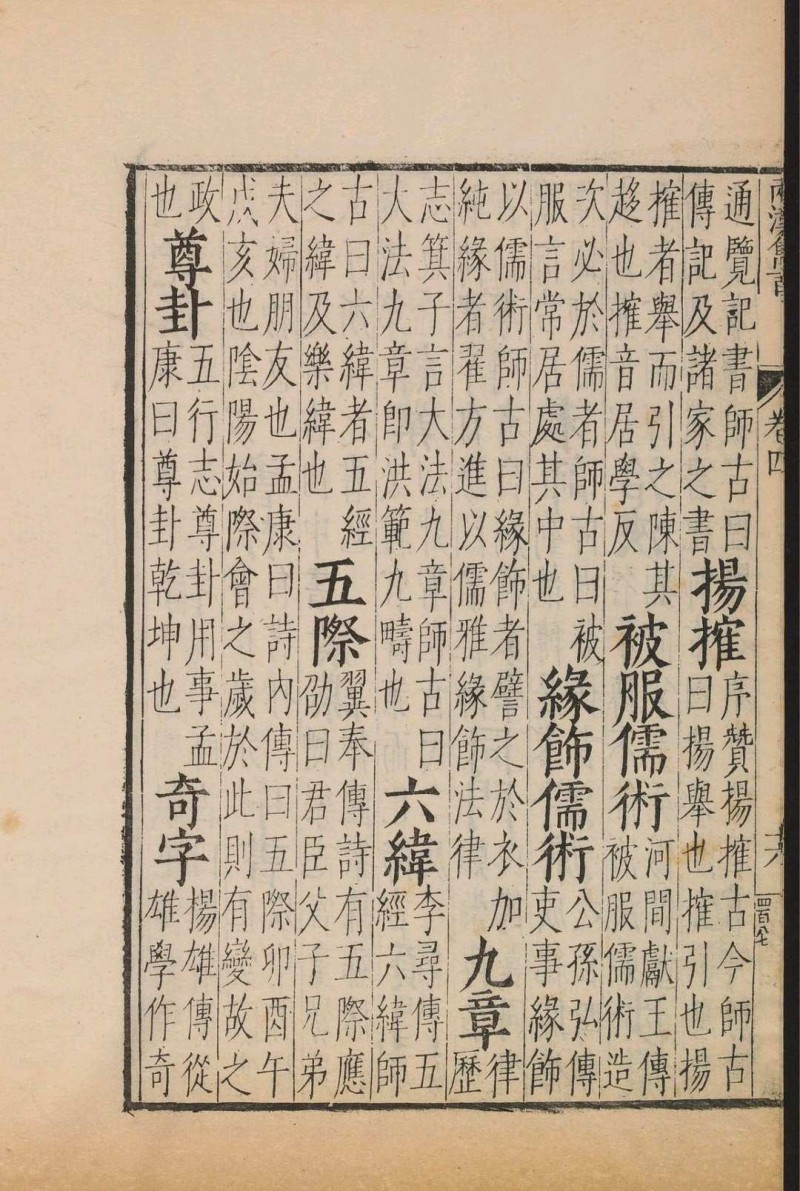 卷四
通覽記書師古曰
傳記及諸家之書
揚搉
序贊揚搉古今師古
曰揚舉也搉引也揚
搉者舉而引之陳其
趍也搉音居學反
被服儒術
河間獻王傳
被服儒術造
次必於儒者師古曰被
服言常居處其中也
緣飾儒術
公孫弘傳
吏事緣飾
以儒術師古曰緣飾者譬之於衣加
純緣者翟方進以儒雅緣飾法律
九章
律
歷
志箕子言大法九章師古曰
大法九章即洪範九疇也
六緯
李尋傳五
經六緯師
古曰六緯者五經
之緯及樂緯也
五際
翼奉傳詩有五際應
劭曰君臣父子兄弟
夫婦朋友也孟康曰詩內傳曰五際卯酉午
戌亥也陰陽始際會之歲於此則有變故之
政
也
尊卦
五行志尊卦用事孟
康曰尊卦乾坤也
奇字
楊雄傳從
雄學作奇